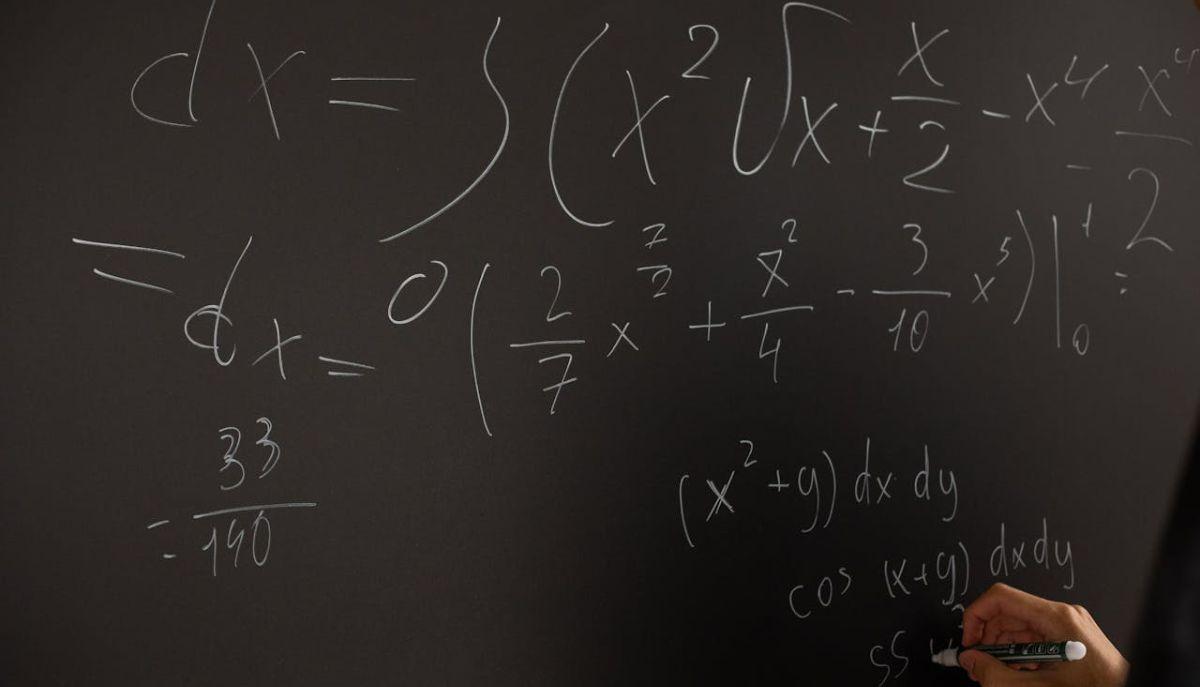 dx = ∫ (x² √x + x/2 - x⁴ - x⁴/2
= dx = 0 (2/7 x^(7/2) + x²/4 - 3/10 x⁵)|₀¹ =
= 33/140
(x² + y) dx dy
cos (x+y) dxdy
SS